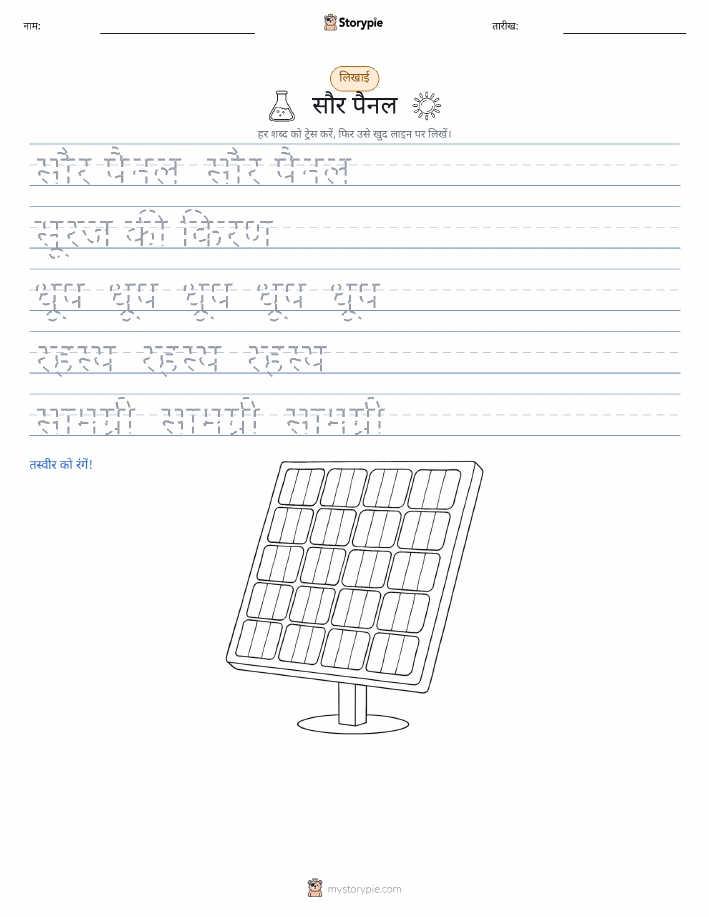 नाम:
Storypie
तारीख:
लिखाई
सौर पैनल
हर शब्द को ट्रेस करें, फिर उसे खुद लाइन पर लिखें।
सौर पैनल सौर पैनल
सूरज की किरण
धूप धूप धूप धूप धूप
रहस्य रहस्य रहस्य
सामग्री सामग्री सामग्री
तस्वीर को रंगें!
mystorypie.com